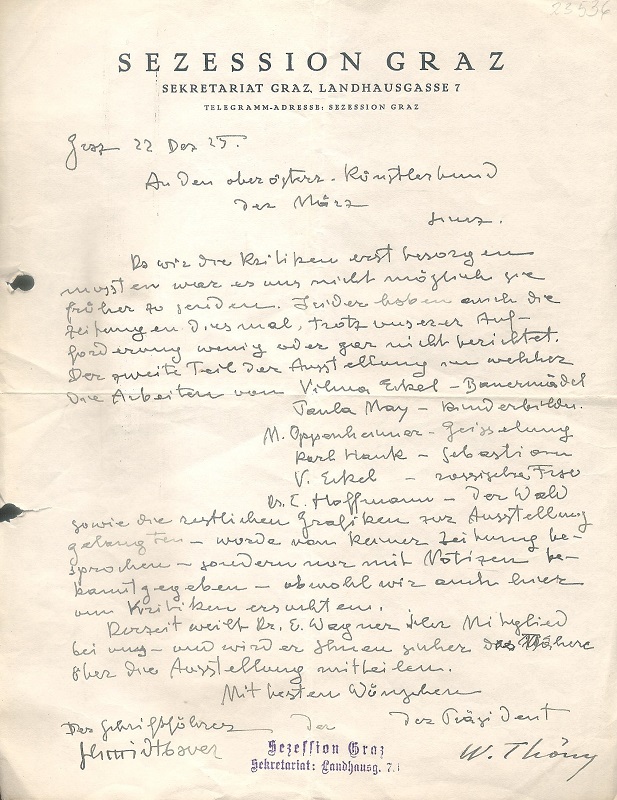 23536
SEZESSION GRAZ
SEKRETARIAT GRAZ, LANDHAUSGASSE 7
TELEGRAMM-ADRESSE: SEZESSION GRAZ
Graz 22 Dez 25.
An den oberösterr. Künstlerbund
der März
Linz.
Da wir die Kritiken erst besorgen
mussten war es uns nicht möglich sie
früher zu senden. Leider haben auch die
Zeitungen diesmal, trotz unserer Auf-
forderung wenig oder gar nicht berichtet.
Der zweite Teil der Ausstellung in welcher
die Arbeiten von Vilma Eckel - Bauernmädel
Paula May - Kinderbilder.
M. Oppenheimer - Geisselung
Karl Hauk - Sebastian
V. Eckel - russische Frau
Dr. E. Hoffmann - Der Wald
sowie die restlichen Grafiken zur Ausstellung
gelangten - wurde von keiner Zeitung be-
sprochen - sondern nur mit Notizen be-
kanntgegeben - obwohl wir auch hier
um Kritiken ersuchten.
Derzeit weilt Dr. E. Wagner ihr Mitglied
bei uns - und wird er Ihnen sicher das Nähere
über die Ausstellung mitteilen.
Mit besten Wünschen
Der Schriftführer der Der Präsident
Schmidtbauer W. Thöny
Sezession Graz
Sekretariat: Landhausg. 7.